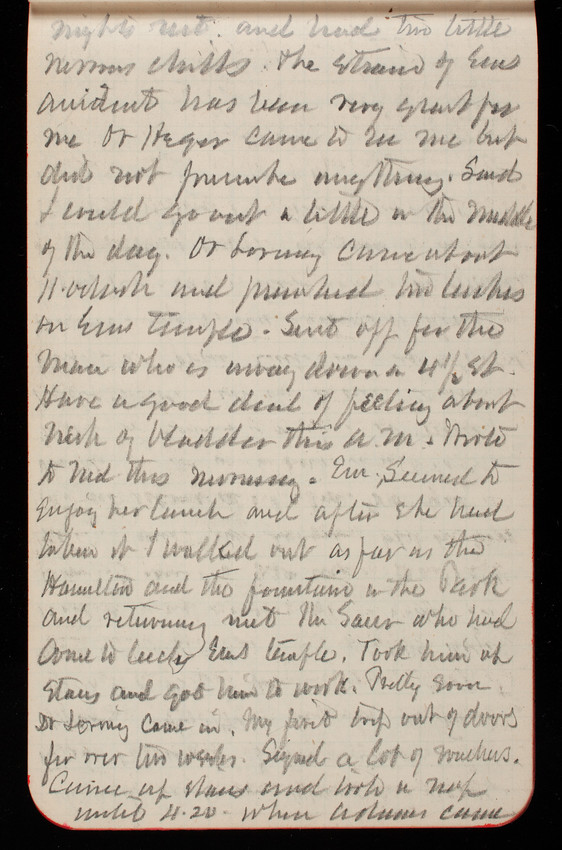 nights rest. and had two little
nervous chills. The strain of Ems
accident has been very great for
me Dr Heger came to see me but
did not prescribe anything. Said
I could go out a little in the middle
of the day. Dr Loring came about
11 oclock and prescribed two leeches
on Ems temple. Sent off for the
man who is away down on 4½ St.
Have a good deal of feeling about
neck of bladder this a.m. Wrote
to Ned this morning. Em. Seemed to
enjoy her lunch and after she had
taken it I walked out as far as the
Hamilton and the fountain in the Park
and returning met Mr who had
come to leech Ems temple. Took him up
stairs and got him to work. Pretty soon
Dr Loring came in. My first trip out of doors
for over two weeks. Signed a lot of vouchers.
Came up stairs and took a nap
until 4.20. When Adams came